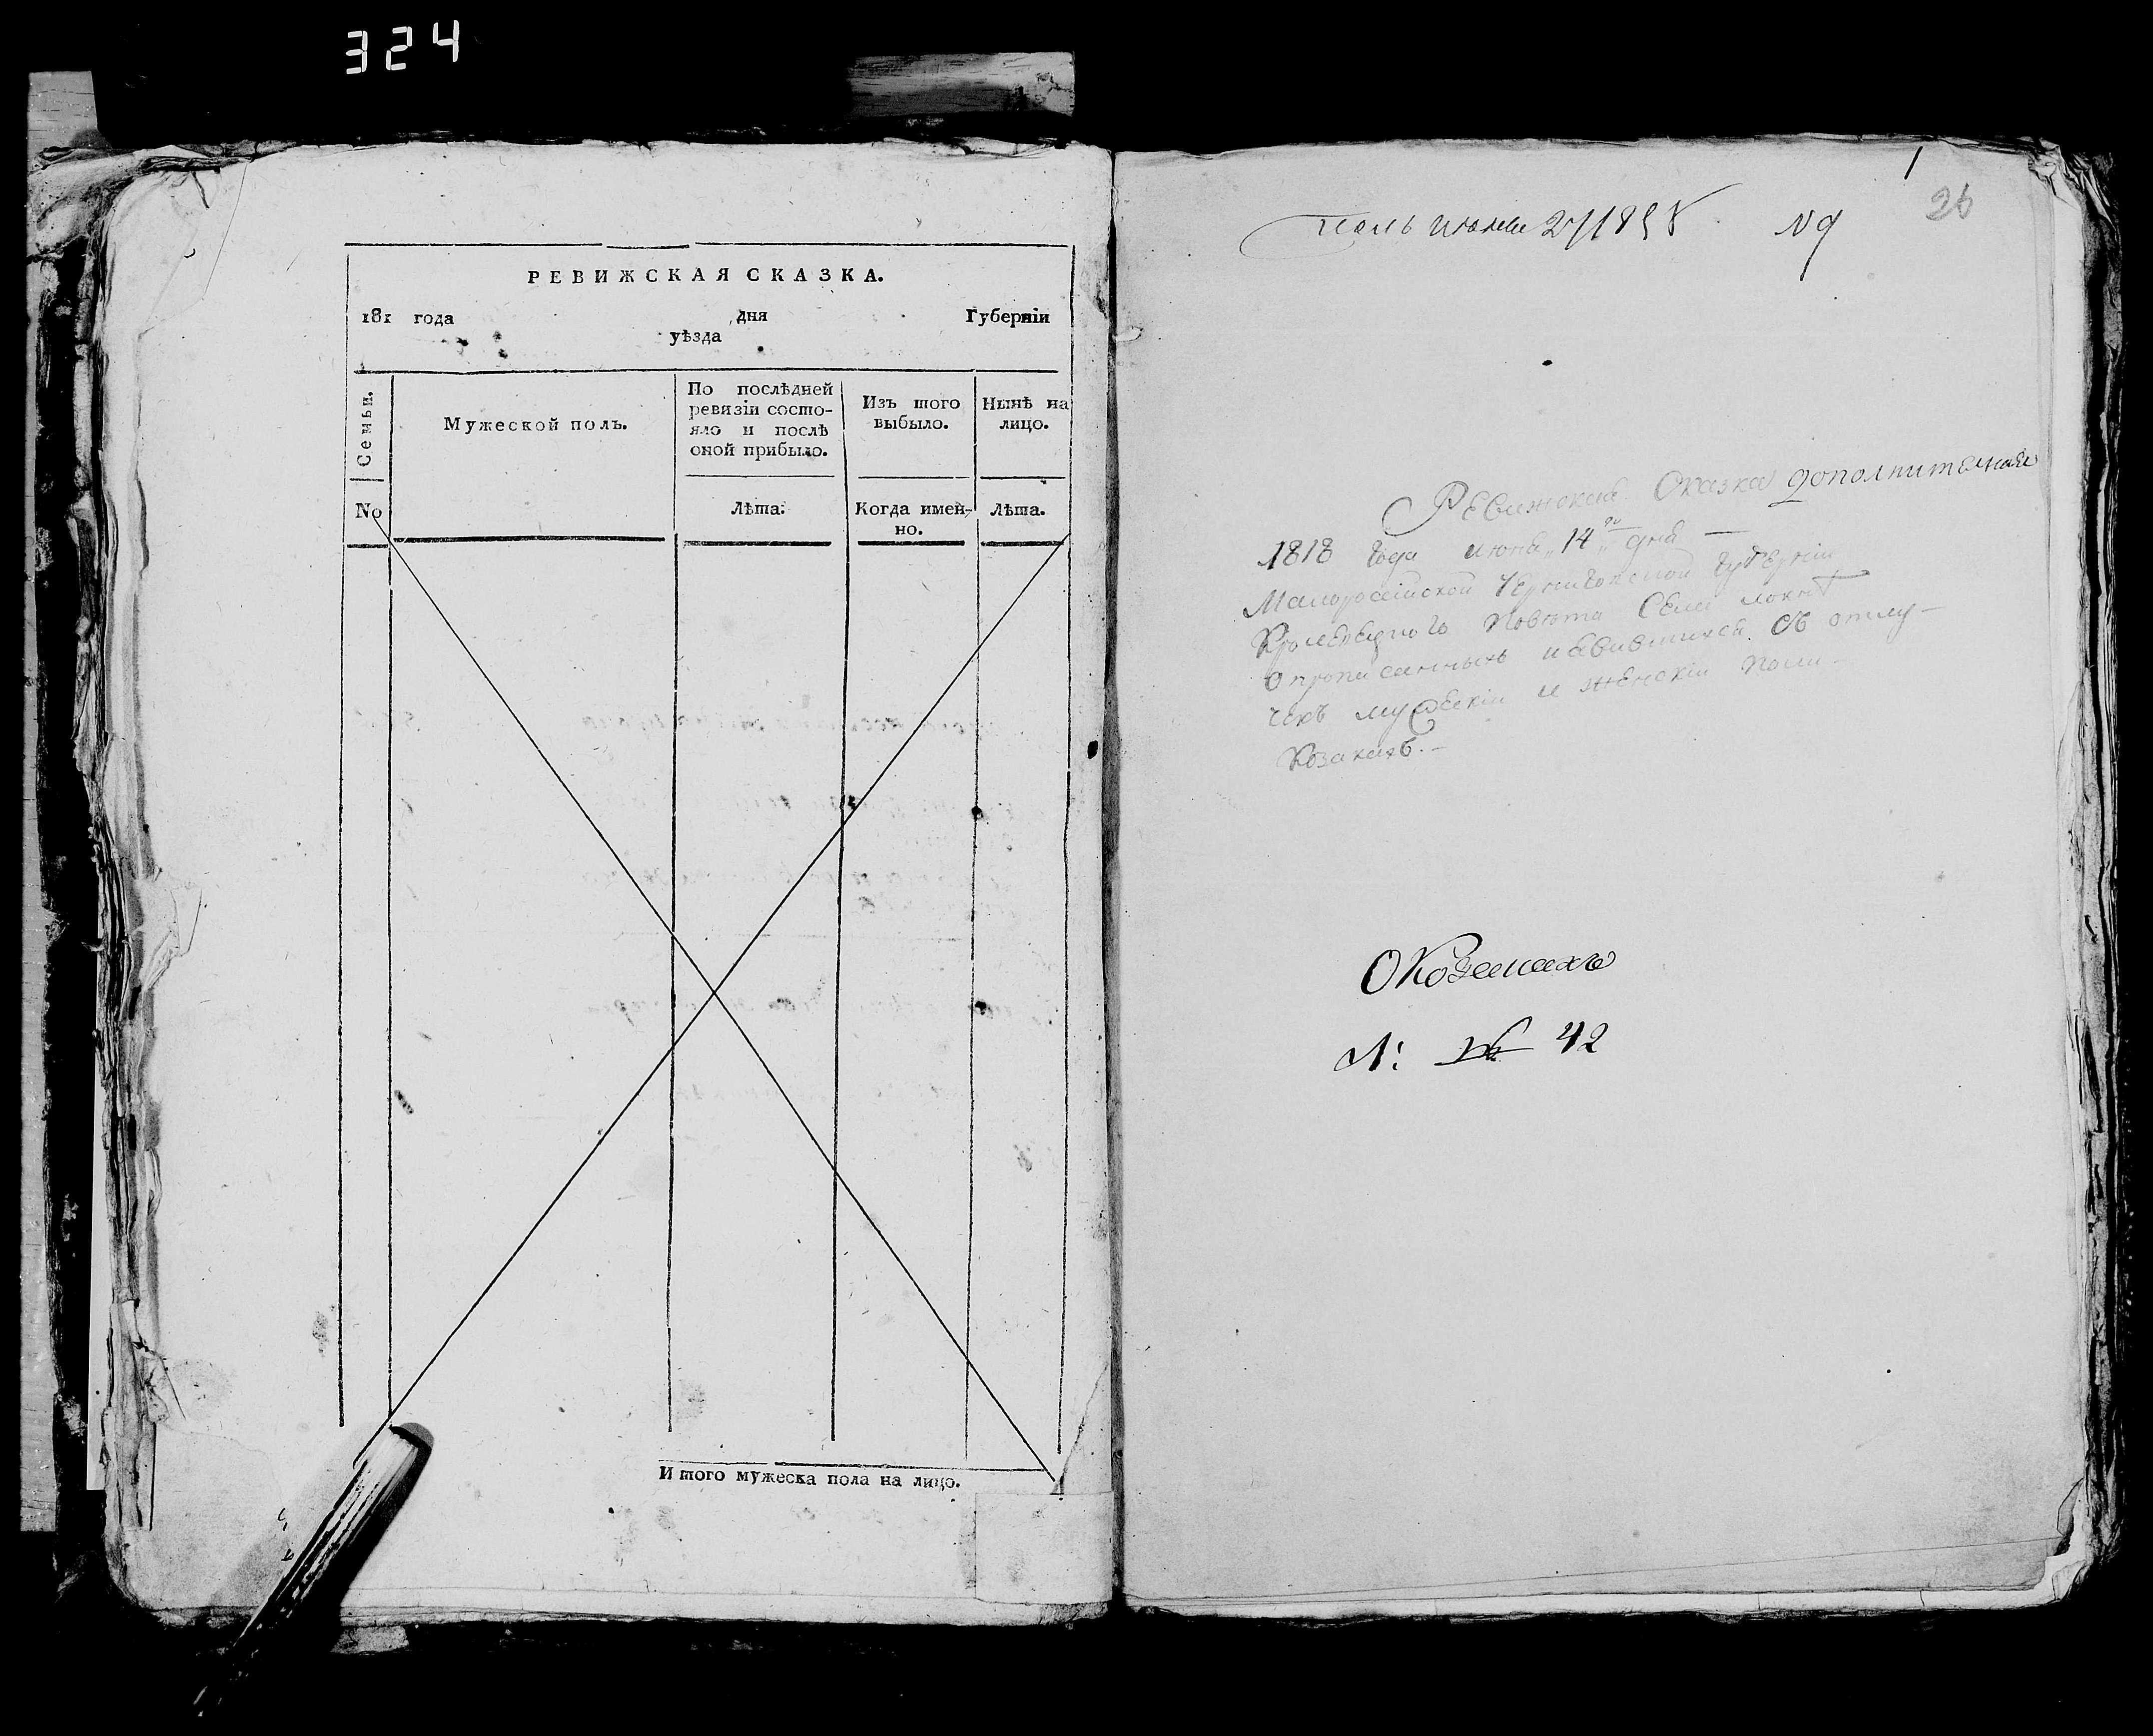 324
РЕВИЖСКАЯ СКАЗКА.
181 года дня Губерніи
уѣзда
Семьи.
Мужеской полъ.
По послѣдней
ревизіи состо-
яло и послѣ
оной прибыло.
Изъ того
выбыло.
Нынѣ на
лицо.
No
Лѣта.
Когда имен-
но.
Лѣта.
И того мужеска пола на лицо.
1
26
июня 27 1818 N 9
Ревижская Сказка дополнителная
1818 года июня „14„ го дня —
Малоросiйской Черниговской губернiи
Кролевецкого Повѣта Села
О прописанныхъ иявившихся съ отлу-
чкъ мужескiи и женскiи поли
Козакахъ. —
О Козакахъ
Л: 42